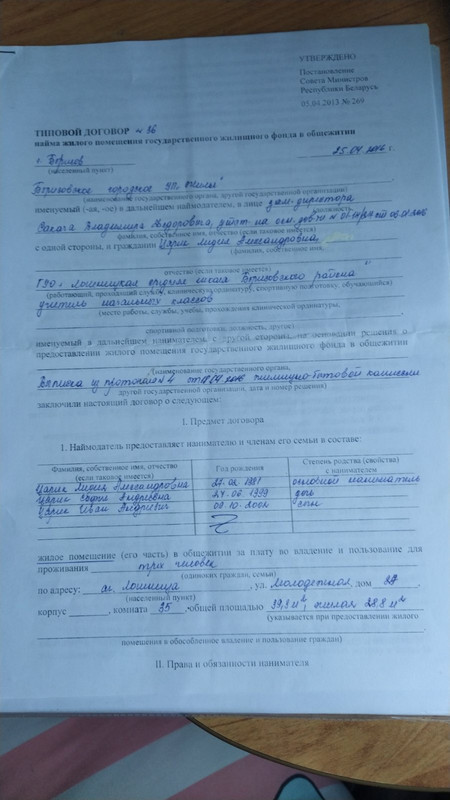 УТВЕРЖДЕНО
Постановление
Совета Министров
Республики Беларусь
05.04.2013 № 269
ТИПОВОЙ ДОГОВОР № 36
найма жилого помещения государственного жилищного фонда в общежитии
г. Борисов 25.04
(населенный пункт)
Борисовское городское УП "Жилье"
(наименование государственной органа, другой государственной организации)
именуемый (-ая, -ое) в дальнейшем наймодателем, в лице зам. директора
должность,
Владимира Федоровича,
фамилия, собственное имя, отчество (если таковое имеется)
с одной стороны, и гражданин Лидия Александровна
(фамилия, собственное имя,
отчество (если таковое имеется)
средняя школа Борисовского района"
(работающий, проходящий службу, клиническую ординатуру, спортивную подготовку, обучающийся)
учитель начальных классов
(место работы, службы, учебы, прохождения клинической ординатуры,
спортивной подготовки, должность, другое)
именуемый в дальнейшем нанимателем, с другой стороны, на основании решения о
предоставлении жилого помещения государственного жилищного фонда в общежитии
(наименование государственного органа,
Выписка из протокола № 4 жилищно-бытовой комиссии
другой государственной организации, дата и номер решения)
заключили настоящий договор о следующем:
I. Предмет договора
1. Наймодатель предоставляет нанимателю и членам его семьи в составе:
Фамилия, собственное имя, отчество Год рождения Степень родства (свойства)
(если таковое имеется) с нанимателем
Лидия Александровна основной наниматель
София Андреевна 24.06.1999 дочь
Иван Андреевич сын
жилое помещение (его часть) в общежитии за плату во владение и пользование для
проживания трёх человек
(одиноких граждан, семьи)
по адресу: аг. Лошница, ул. Молодежная, дом
(населенный пункт)
корпус , комната 35, общей площадью 39,3 м², жилая 28,8 м²
(указывается при предоставлении жилого
помещения в обособленное владение и пользование граждан)
II. Права и обязанности нанимателя